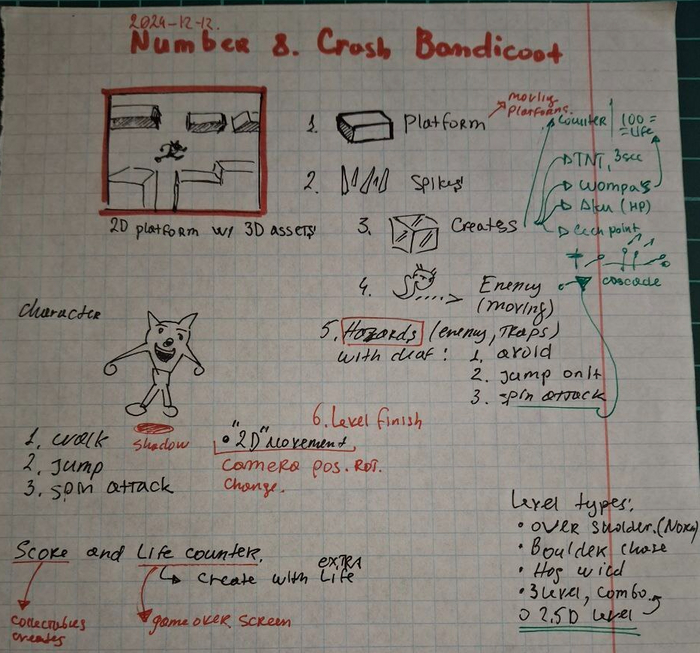 2024-12-12.
Number 8. Crash Bandicoot
2D platform w/ 3D assets
1. Platform
moving
platforms.
2. Spikes
3. Creates
Counter | 100 =
=Life
TNT, 3sec
Wompas
Aku (HP)
Cech point
cascade
4. Enemy
(moving)
5. Hazards (enemy, Traps)
1. avoid
2. Jump on it
3. spin attack
Character
shadow
1. Walk
2. Jump
3. Spin attack
6. Level finish
• "2D" Movement
Camera pos. Rot.
change.
Score and Life counter.
extra
Create with Life
collectables
creates
game over screen
Level types:
• over sholder. (Norm)
• Boulder chase
• Hog wild
• 3 level, combo
2.5D level